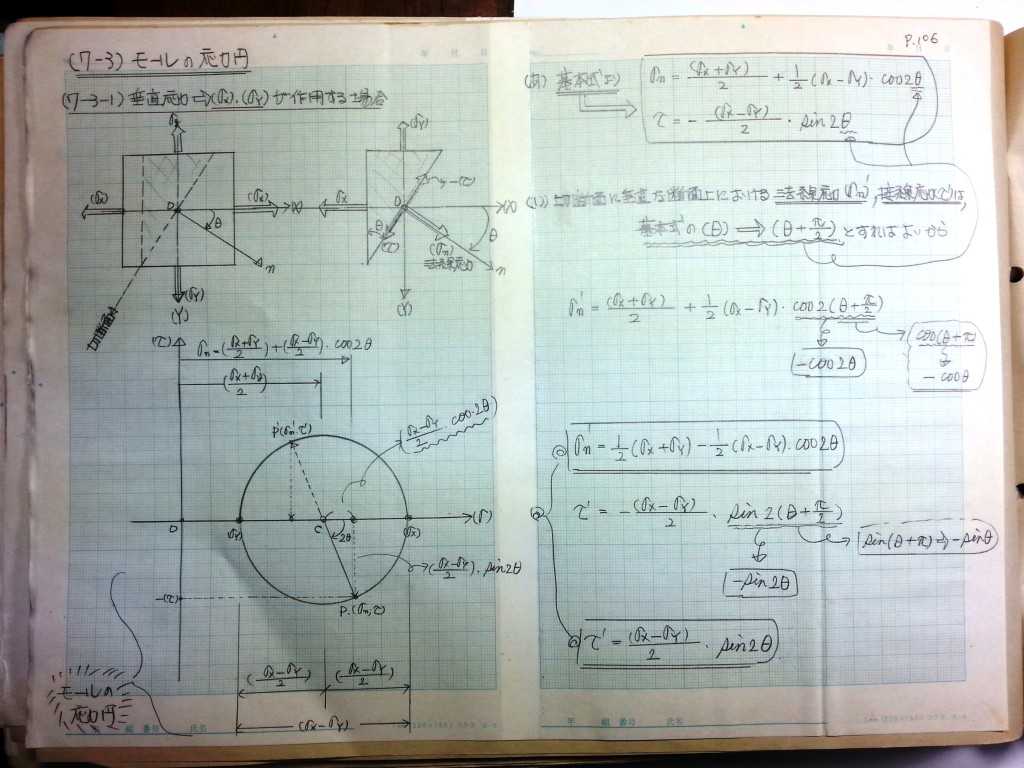 P.106
(7-3) モールの応力円
(7-3-1) 垂直応力⇒(σx).(σy)が作用する場合
σy
(σx)
(σx)
(X)
O
θ
n
(σy)
(Y)
切断面
(σy)
σx
(X)
O
-(τ)
θ
(τ)
(σn)
法線応力
θ
n
(Y)
(τ)
σn=(σx+σy/2)+(σx-σy/2)・cos2θ
(σx+σy/2)
P'(σn',τ')
(σx-σy/2・cos・2θ)
O
(σy)
C
2θ
(σx)
(σ)
(σx-σy/2)・sin2θ
-(τ)
P.(σn,τ)
(σx-σy/2)
(σx-σy/2)
(σx-σy)
モールの
応力円
年 月 日
組 番号 氏名
(あ) 基本式より
σn = (σx+σy)/2 + 1/2(σx-σy)・cos2θ
τ = - (σx-σy)/2・sin2θ
(い) 切断面に垂直な断面上における法線応力σn', 接線応力(τ')は
基本式の(θ) ⇒ (θ+π/2)とすればよいから
σn' = (σx+σy)/2 + 1/2(σx-σy)・cos2(θ+π/2)
-cos2θ
cos(θ+π)
-cosθ
σn' = 1/2(σx+σy) - 1/2(σx-σy)・cos2θ
τ' = - (σx-σy)/2・sin2(θ+π/2)
sin(θ+π)⇒-sinθ
-sin2θ
τ' = (σx-σy)/2・sin2θ
年 組 番号 氏名